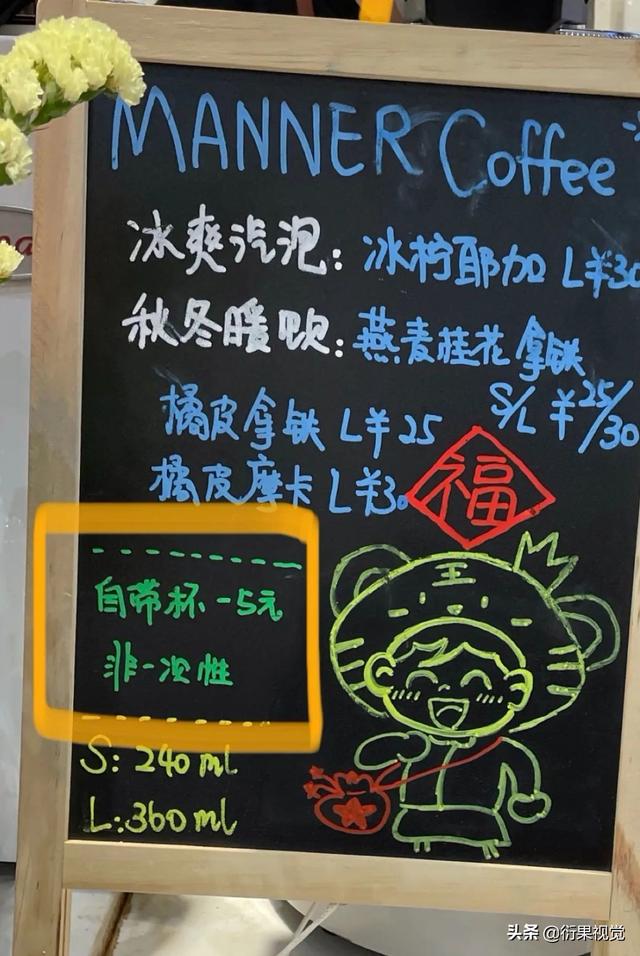 MANNER Coffee
冰爽汽泡：冰柠耶加 L¥30
秋冬暖飲：燕麦桂花拿铁
S/L ¥25/30
橘皮拿铁 L¥25
橘皮摩卡 L¥30
福
王
自带杯 -5元
非一次性
S: 240ml
L: 360ml
头条 @衍果视觉